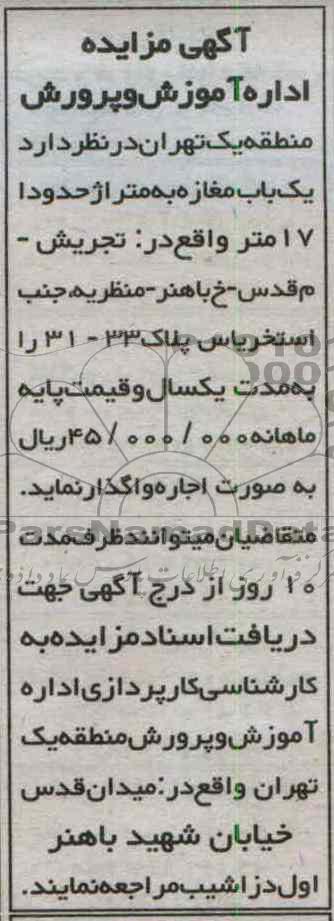 آگهی مزایده
اداره آموزش و پرورش
منطقه یک تهران در نظر دارد
یک باب مغازه به متراژ حدودا
۱۷ متر واقع در: تجریش -
م قدس - خ باهنر - منظریه، جنب
استخر یاس پلاک ۳۳ - ۳۱ را
به مدت یکسال و قیمت پایه
ماهانه ۴۵/۰۰۰/۰۰۰ ریال
به صورت اجاره واگذار نماید.
ParsNamadData
متقاضیان میتوانند ظرف مدت
۱۰ روز از درج آگهی جهت
دریافت اسناد مزایده به
کارشناسی کارپردازی اداره
آموزش و پرورش منطقه یک
تهران واقع در: میدان قدس
خیابان شهید باهنر
اول دزاشیب مراجعه نمایند.